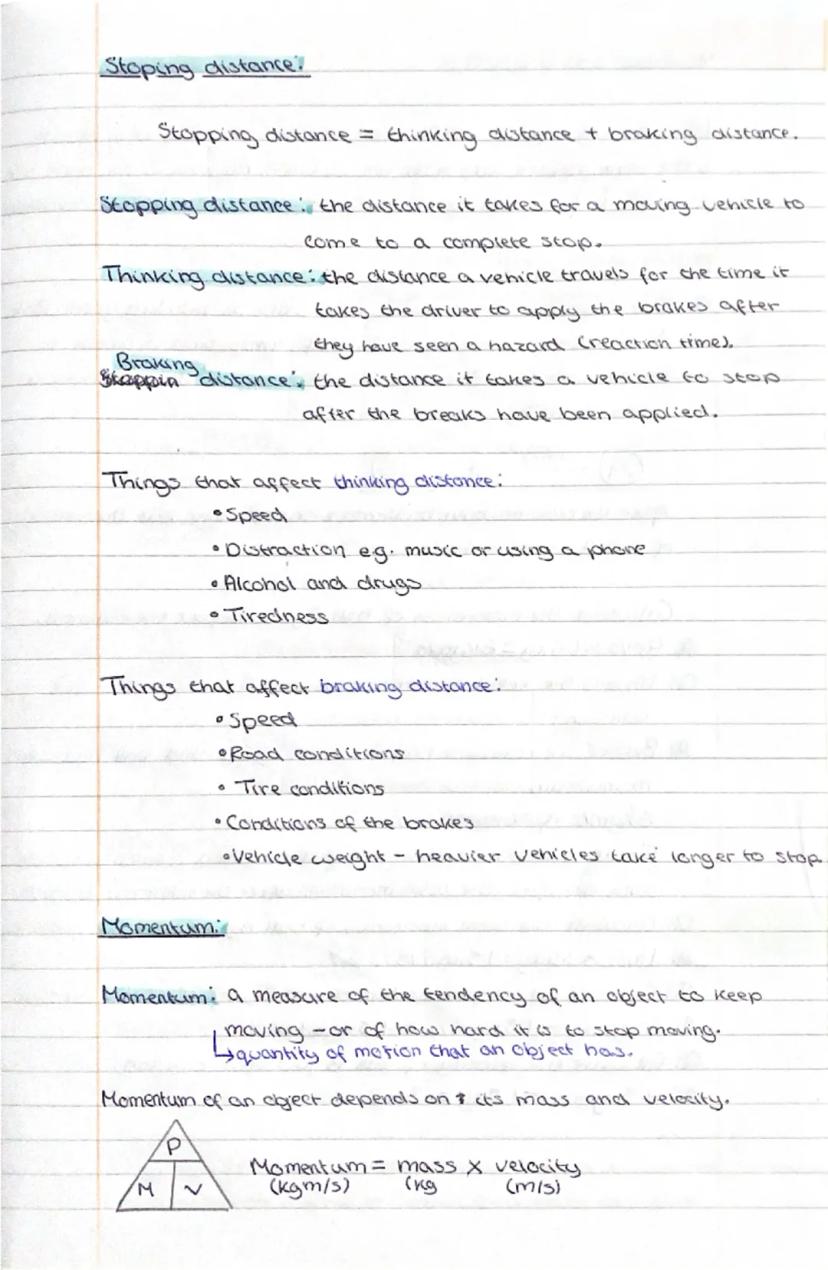 Stoping distance:
Stopping distance = thinking distance + braking distance.
Stopping distance: the distance it takes for a moving vehicle to
come to a complete stop.
Thinking distance: the distance a vehicle travels for the time it
takes the driver to apply the brakes after
they have seen a hazard (reaction time).
Braking
Stoppin distance: the distance it takes a vehicle to stop
after the breaks have been applied.
Things that affect thinking distance:
• Speed
• Distraction e.g. music or using a phone
• Alcohol and drugs
• Tiredness
Things that affect braking distance:
• Speed
• Road conditions
• Tire conditions
• Conditions of the brakes
• Vehicle weight - heavier vehicles take longer to stop
Momentum:
Momentum: a measure of the tendency of an object to keep
moving - or of how hard it is to stop moving.
↳ quantity of motion that an object has.
Momentum of an object depends on its mass and velocity.
P
M V
Momentum = mass x velocity
(kgm/s) (kg (m/s)